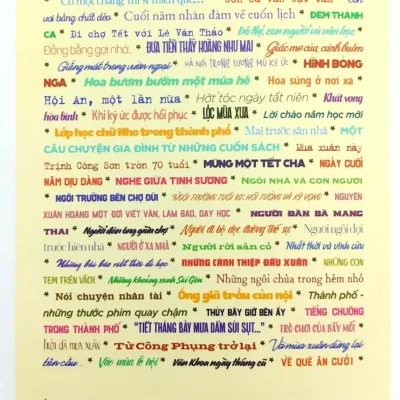 Có một tháng thi sĩ miền quê...
vơi bằng chất dẻo * Cuối năm nhàn đàm về cuốn lịch * ĐÊM THANH
CA * Đi chợ Tết với Lê Văn Thảo * Đô thị, con người và văn học
Đồng bằng gợi nhớ... * ĐƯA TIỄN THẦY HOÀNG NHU MAI * Giấc mơ của cánh buồm
* Giăng mắt trong vườn ngoại * HÀ NỘI TRONG SƯƠNG MÙ KÝ ỨC * HÌNH BÓNG
NGA * Hoa bươm bướm một mùa hè * Hoa súng ở nơi xa
Hội An, một lần nữa * Hớt tóc ngày tất niên * Khát vọng
hòa bình * Khi ký ức được hồi phục * LỘC MÙA XƯA * Lời chào năm học mới
* Lớp học chữ Nho trong thành phố * Mai trước sân nhà * MỘT
CÂU CHUYỆN GIA ĐÌNH TỪ NHỮNG CUỐN SÁCH * Mùa xuân này
Trịnh Công Sơn tròn 70 tuổi * MÙNG MỘT TẾT CHA * NGÀY CUỐI
NĂM DỊU DÀNG * NGHE GIỮA TINH SƯƠNG * NGÔI NHÀ VÀ CON NGƯỜI
* NGÔI TRƯỜNG BÊN CHỢ ĐŨI * * NGUYỄN
XUÂN HOÀNG MỘT ĐỜI VIẾT VĂN, LÀM BÁO, DẠY HỌC * NGƯỜI ĐÀN BÀ MANG
THAI * Người đàn ông giữa chợ * Người đi bộ dọc đường thế sự * Người ngồi đợi
trước hiên nhà * NGƯỜI Ở XA NHÀ * Người rời sân cỏ * Nhất thời và vĩnh cửu
* Những bài báo viết thời đi học * NHỮNG CÁNH THIỆP ĐẦU XUÂN * NHỮNG CON
TEM TRÊN VÁCH * Những khoảng xanh Sài Gòn * Những ngôi chùa trong hẻm nhỏ
* Nói chuyện nhân tài * Ông già trầu của nội * Thành phố -
những thước phim quay chậm * THỦY BÂY GIỜ BÊN ẤY * TIẾNG CHUÔNG
TRONG THÀNH PHỐ * "TIẾT THÁNG BẢY MƯA DẦM SÙI SỤT..." * TRÒ CHƠI CỦA BẦY MỐI
* TRỜI ĐÃ MÙA XUÂN * Từ Công Phụng trở lại * Và mùa xuân đứng lại
bên cầu... * Vào mùa lễ hội * Văn Khoa ngày tháng cũ * VỀ QUÊ ĂN CƯỚI *